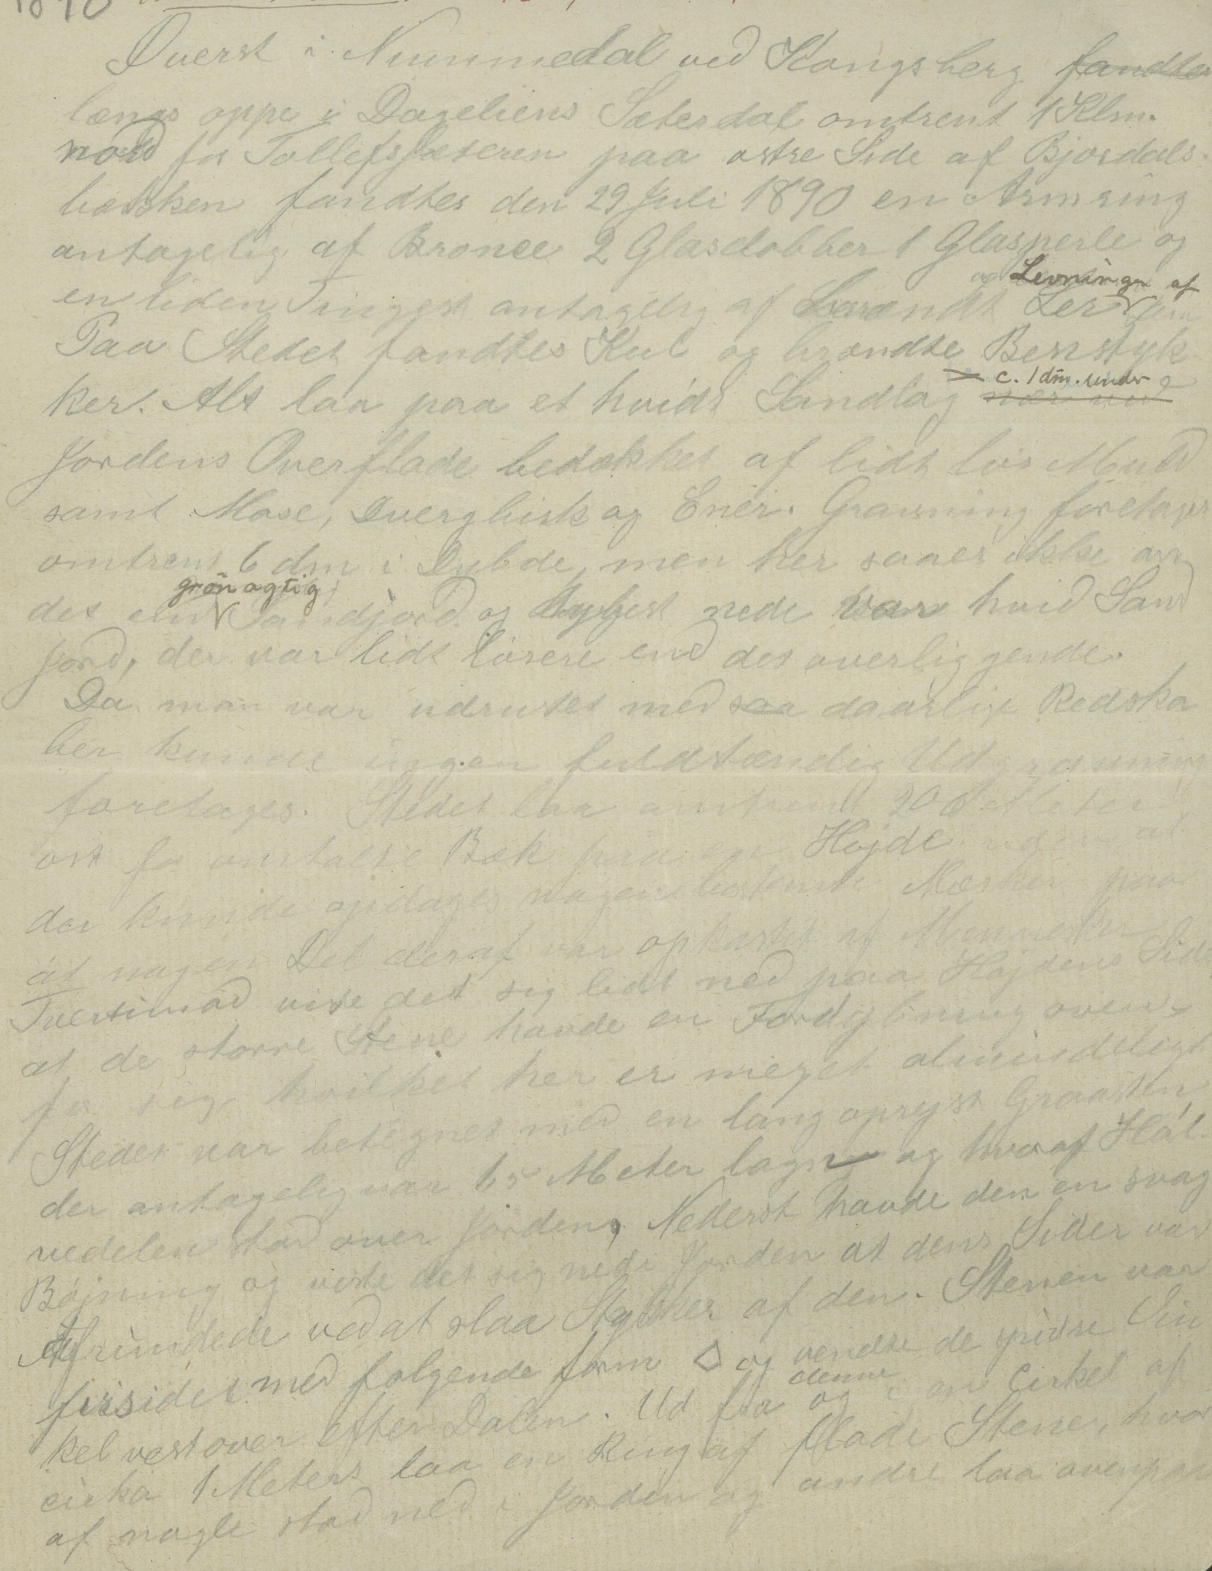 1890
Øverst i Nummedal ved Kongsberg fandtes
længs oppe i Dageliens Sæterdal omtrent 1 Klm.
nord for Tollefsjæteren paa østre Side af Bjordals-
bækken fandtes den 29 Juli 1890 en Armring
antagelig af Bronce 2 Glasdobber 1 Glasperle og
og Levninger af
en liden Tingest antagelig af brændt Ler
Paa Stedet fandtes Kul og brændte Benstyk-
c. 1 dm. under
ker. Alt laa paa et hvidt Sandlag
Jordens Overflade bedækket af lidt løs Muld
samt Mose, Dvergbirk og Ener. Gravning foretoges
omtrent 6 dm i Dybde, men her saaes ikke an
grønagtig
det end Sandjord og dybest nede var hvid Sand
jord, der var lidt løsere end det overliggende.
Da man var udrustet med saa daarlige Redska
ber kunde ingen fuldstændig Udgravning
foretages. Stedet laa omtrent 200 Meter
øst for omtalte Bæk paa en Højde uden at
der kunde opdages nogen bestemte Mærker paa
at nogen Del deraf var opkastet af Mennesker
Tvertimod viste det sig lidt ned paa Højdens Side
at de større Stene havde en Fordybning oven-
for sig, hvilket her er meget almindeligt
Stedet var betegnet med en lang oprejst Graasten,
der antagelig var 1,5 Meter lang og hvoraf Hal-
vedelen stod over Jorden, Nederst havde den en svag
Bøjning og viste det sig nede i Jorden at dens Sider var
afrundede ved at slaa Stykker af den. Stenen var
firsidet med følgende form og vendte de spidse Vin
kel vestover efter Dalen. Ud fra denne og i en Cirkel af
cirka 1 Meters laa en Ring af flade Stene, hvor
af nogle stod ned i Jorden og andre laa ovenpaa